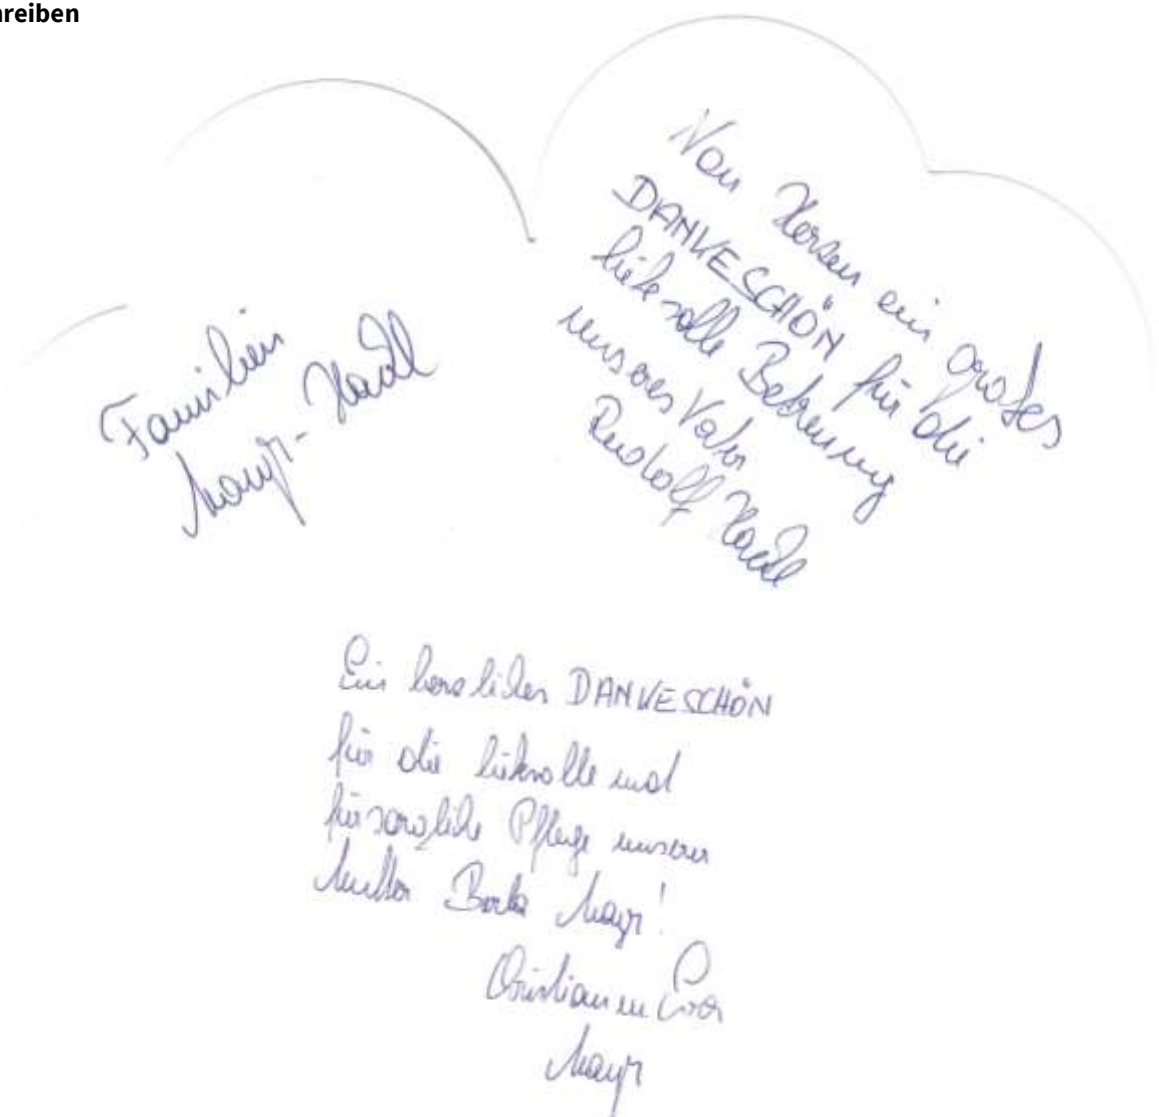 reiben
Von Herzen ein großes
DANKESCHÖN für die
liebevolle Betreuung
unseres Vater
Rudolf Hackl
Familien
Mayr-Hackl
Ein herzliches DANKESCHÖN
für die liebevolle und
fürsorgliche Pflege unserer
Mutter Berta Mayr!
Christian u Eva
Mayr